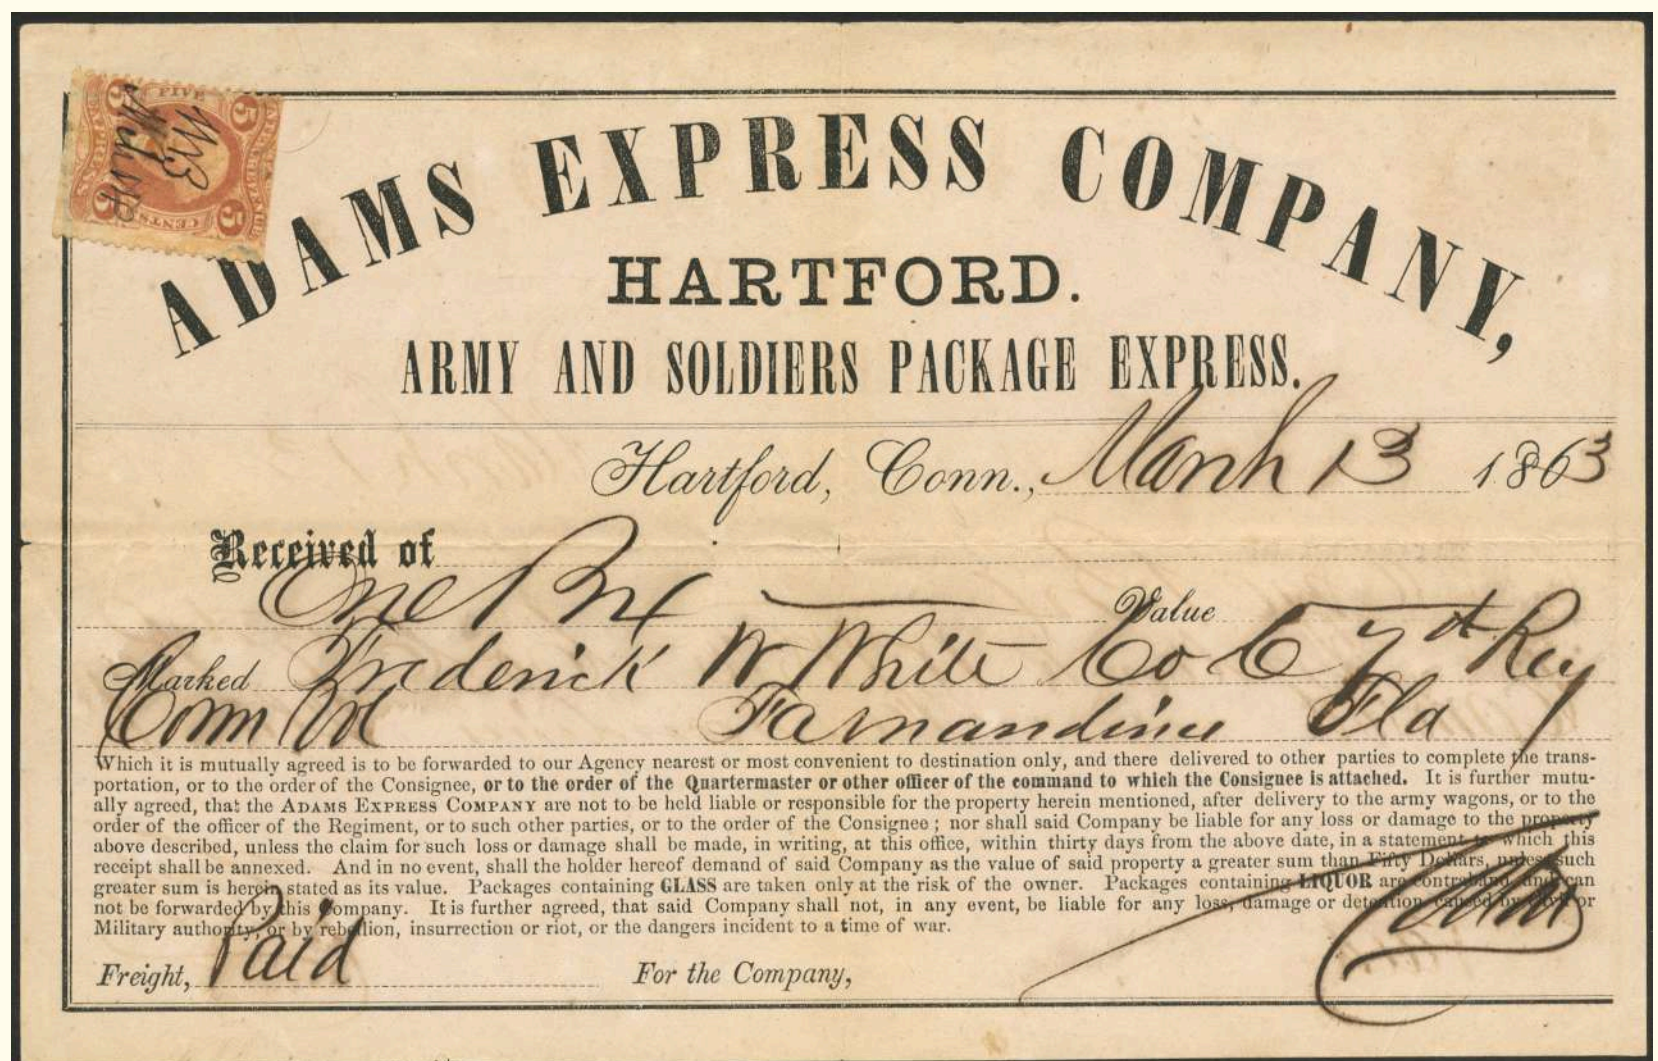 FIVE
5 5
5 5
CENTS
M 13
ADAMS EXPRESS COMPANY,
HARTFORD.
ARMY AND SOLDIERS PACKAGE EXPRESS.
Hartford, Conn., March 13 1863
Received of
One Box Value
Marked Frederick W White Co C 7th Reg
Conn Vol Farnandina Fla
Which it is mutually agreed is to be forwarded to our Agency nearest or most convenient to destination only, and there delivered to other parties to complete the trans-
portation, or to the order of the Consignee, or to the order of the Quartermaster or other officer of the command to which the Consignee is attached. It is further mutu-
ally agreed, that the ADAMS EXPRESS COMPANY are not to be held liable or responsible for the property herein mentioned, after delivery to the army wagons, or to the
order of the officer of the Regiment, or to such other parties, or to the order of the Consignee ; nor shall said Company be liable for any loss or damage to the property
above described, unless the claim for such loss or damage shall be made, in writing, at this office, within thirty days from the above date, in a statement to which this
receipt shall be annexed. And in no event, shall the holder hereof demand of said Company as the value of said property a greater sum than Fifty Dollars, unless such
greater sum is herein stated as its value. Packages containing GLASS are taken only at the risk of the owner. Packages containing LIQUOR are contraband, and can
not be forwarded by this Company. It is further agreed, that said Company shall not, in any event, be liable for any loss, damage or detention caused by Civil or
Military authority, or by rebellion, insurrection or riot, or the dangers incident to a time of war.
Freight, Paid For the Company,